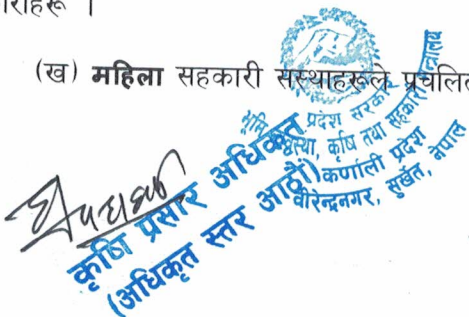 राहरू ।
(ख) महिला सहकारी संस्थाहरूले प्रचलित
प्रदेश सरकार
भूमि व्यवस्था, कृषि तथा सहकारी मन्त्रालय
कर्णाली प्रदेश
वीरेन्द्रनगर, सुर्खेत, नेपाल
कृषि प्रसार अधिकृत
(अधिकृत स्तर आठौं)